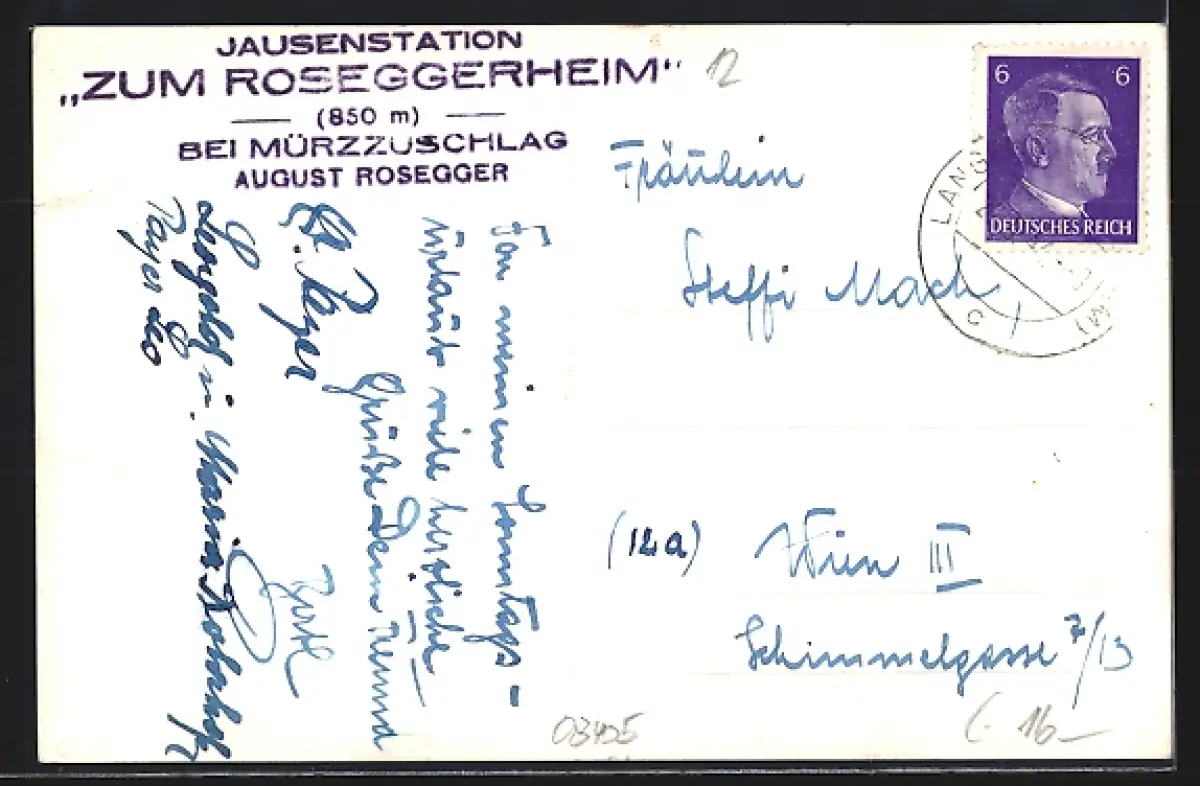 JAUSENSTATION
„ZUM ROSEGGERHEIM“
(850 m)
BEI MÜRZZUSCHLAG
AUGUST ROSEGGER
12
6 6
DEUTSCHES REICH
LANG
c
Fräulein
Steffi Mach
(12a) Wien III
Schimmelgasse 7/13
Von meinem Sonntags-
urlaub viele herzliche
Grüße Dein Freund
Payer
Maria
Payer Leo
03405
16